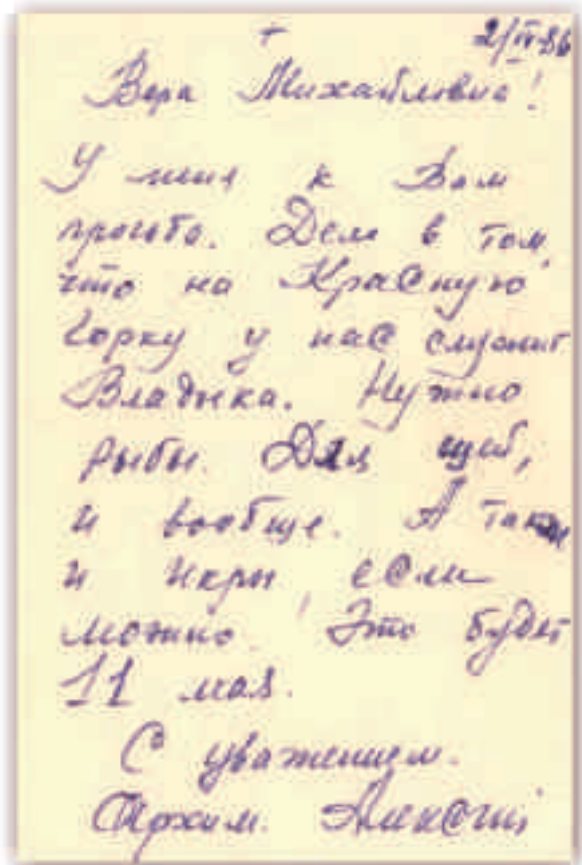 + 2/IV-86
Вера Михайловна!
У меня к Вам
просьба. Дело в том,
что на Красную
Горку у нас служит
Владыка. Нужно
рыбы. Для щей,
и вообще. А также
и икры, если
можно. Это будет
11 мая.
С уважением.
Архим. Алексий